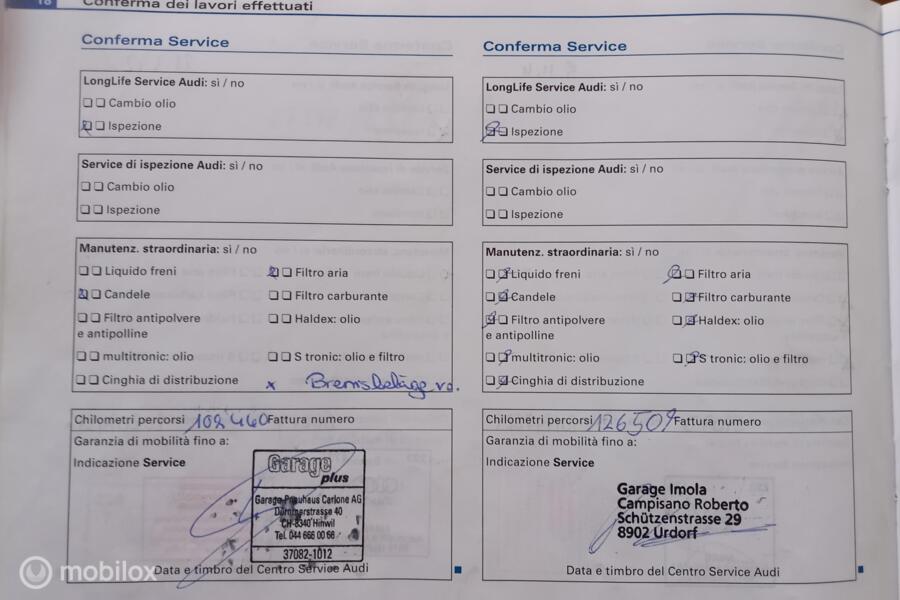 18 Conferma dei lavori effettuati
Conferma Service
LongLife Service Audi: sì / no
Cambio olio
Ispezione
Service di ispezione Audi: sì / no
Cambio olio
Ispezione
Manutenz. straordinaria: sì / no
Liquido freni Filtro aria
Candele Filtro carburante
Filtro antipolvere Haldex: olio
e antipolline
multitronic: olio S tronic: olio e filtro
Cinghia di distribuzione x Bremsbeläge vo.
Chilometri percorsi 108460 Fattura numero
Garanzia di mobilità fino a:
Indicazione Service
Garage
plus
Carlone AG
strasse 40
CH-8340 Hinwil
Tel. 044 666 00 66
37082-1012
Data e timbro del Centro Service Audi
Conferma Service
LongLife Service Audi: sì / no
Cambio olio
Ispezione
Service di ispezione Audi: sì / no
Cambio olio
Ispezione
Manutenz. straordinaria: sì / no
Liquido freni Filtro aria
Candele Filtro carburante
Filtro antipolvere Haldex: olio
e antipolline
multitronic: olio S tronic: olio e filtro
Cinghia di distribuzione
Chilometri percorsi 126509 Fattura numero
Garanzia di mobilità fino a:
Indicazione Service
Garage Imola
Campisano Roberto
Schützenstrasse 29
8902 Urdorf
Data e timbro del Centro Service Audi
mobilox